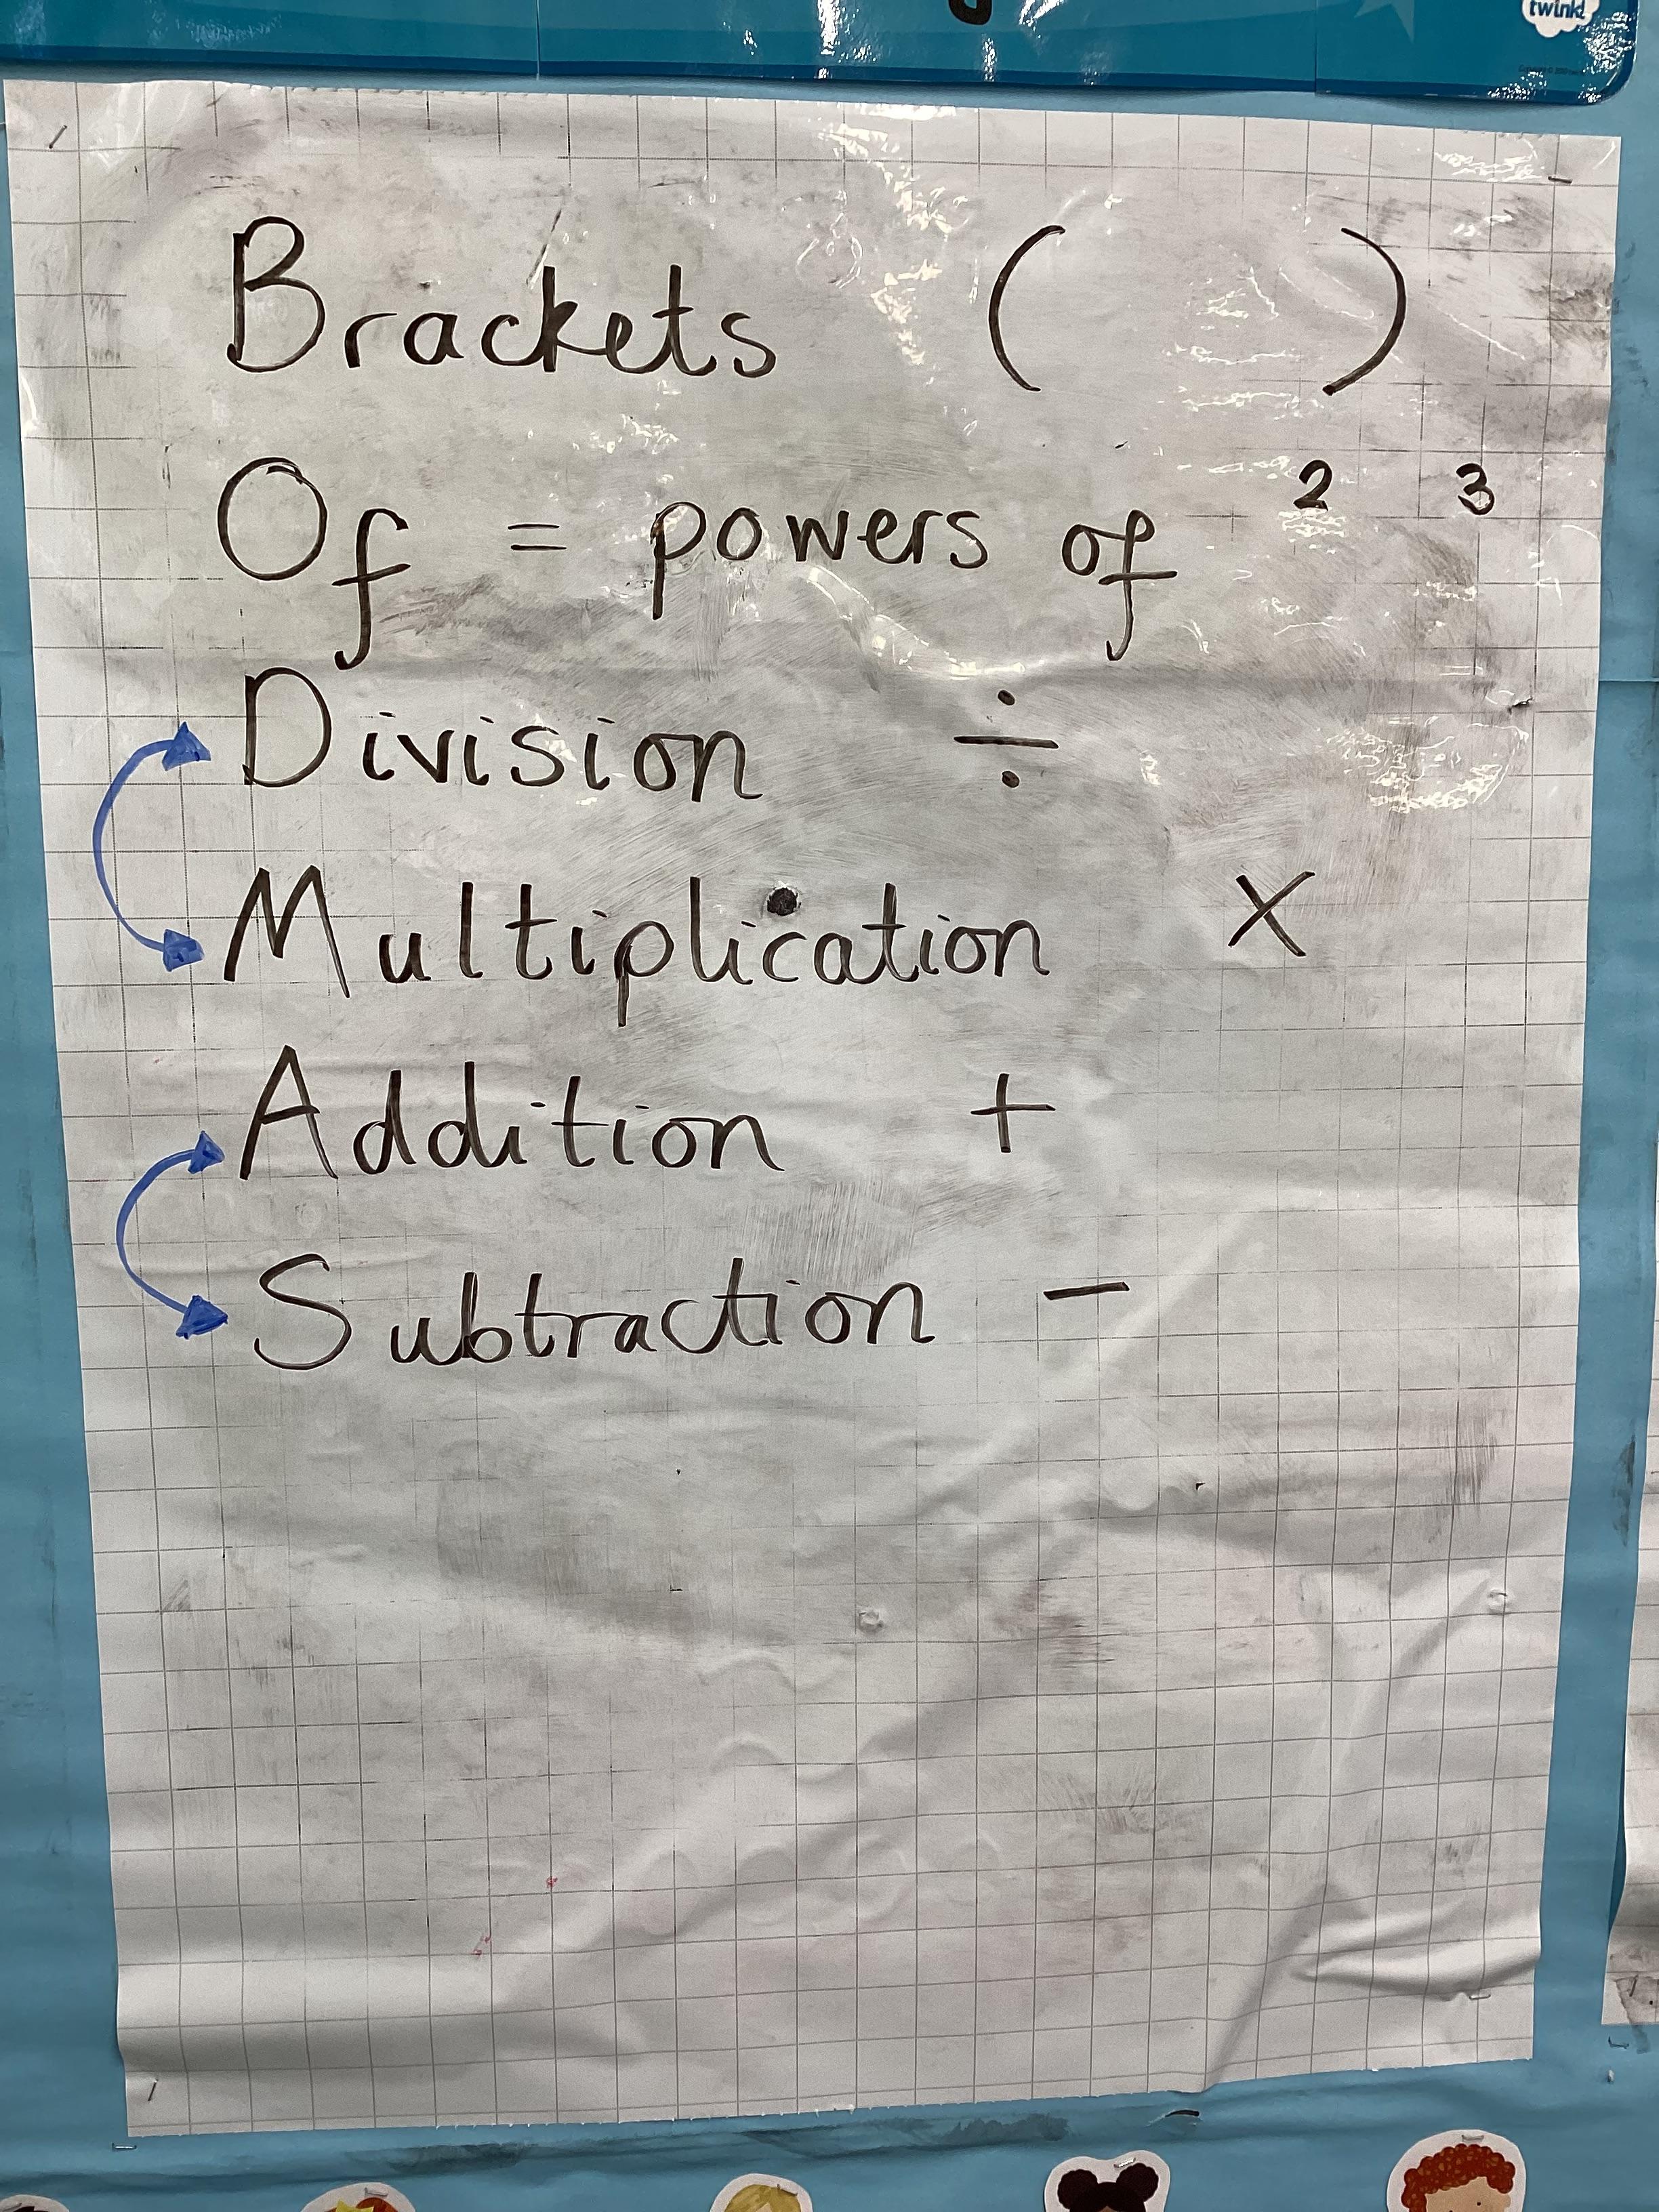 twinkl
Brackets ( )
Of = powers of ² ³
Division ÷
Multiplication ×
Addition +
Subtraction −